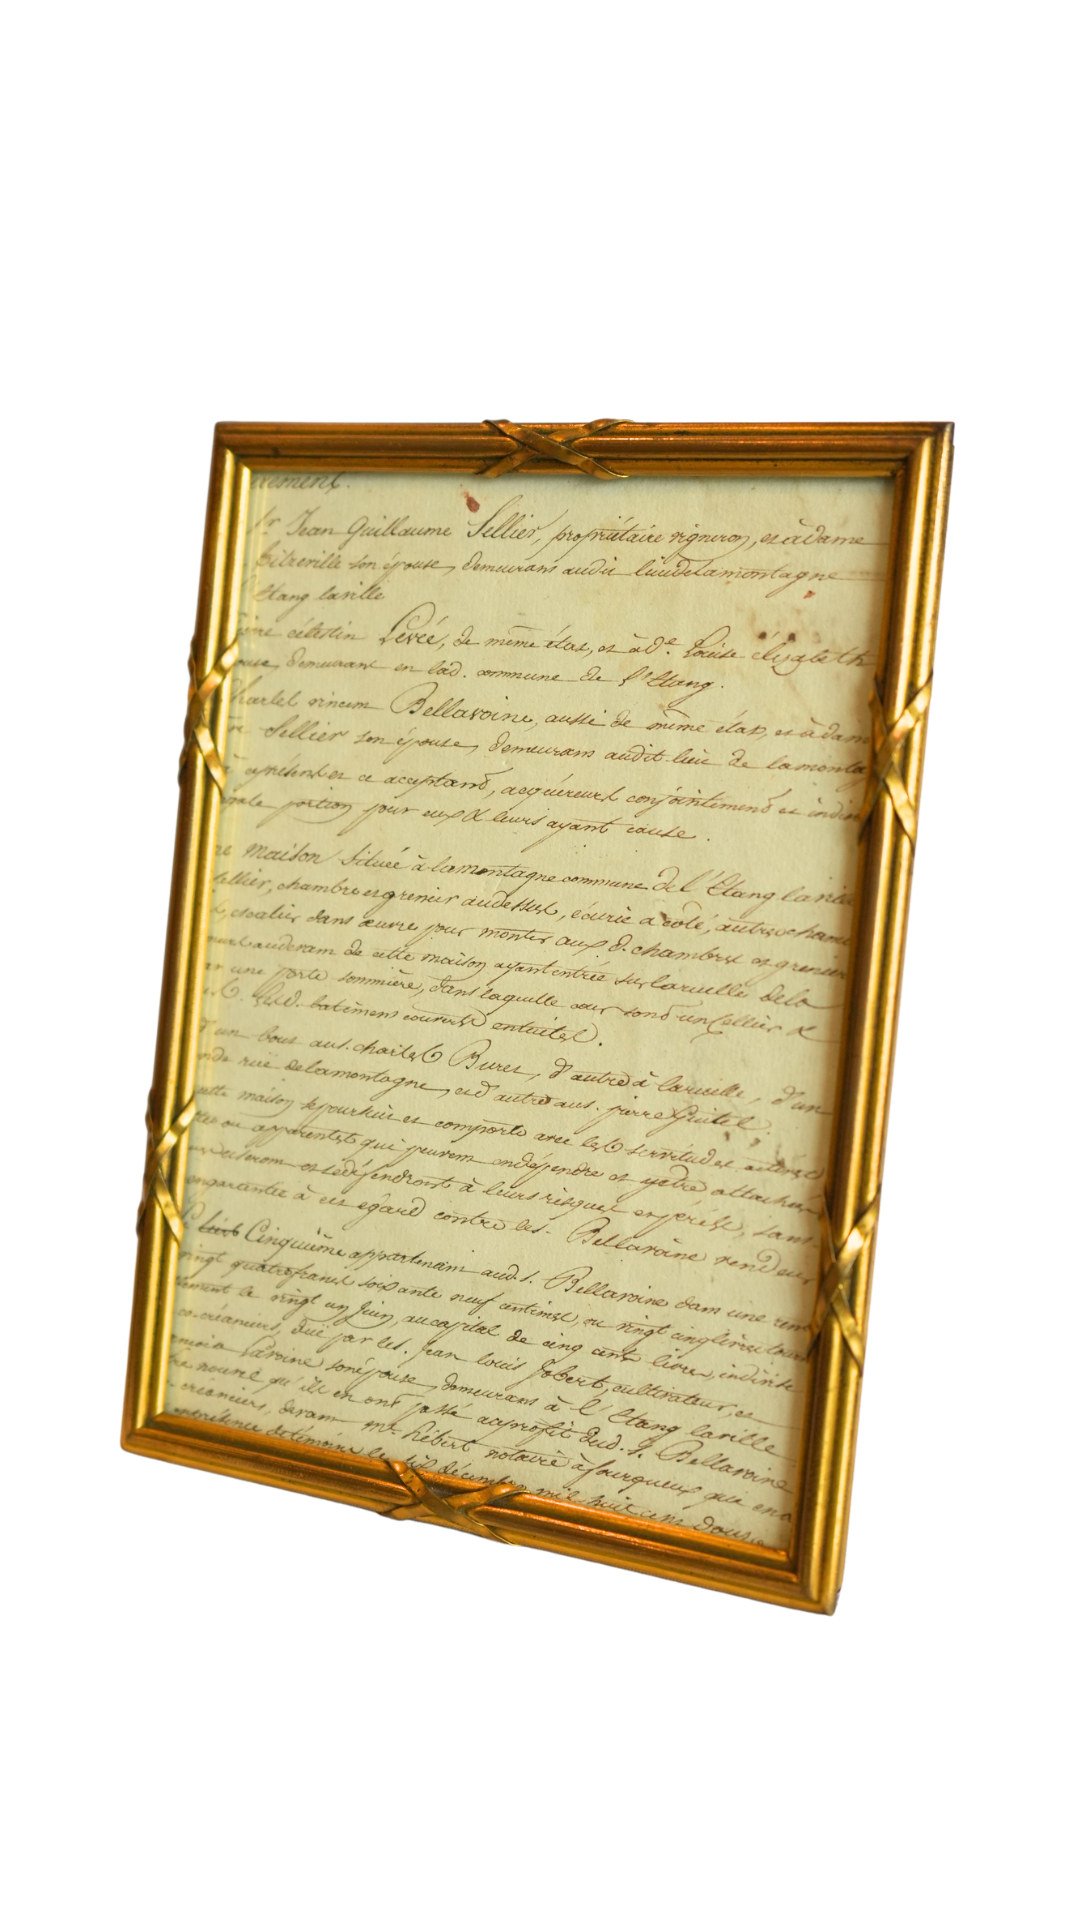 Sr. Jean Guillaume Sellier, propriétaire vigneron, et à dame
son épouse, demeurans audit lieu de lamontagne
Etang laville
célestin Levéé, de même état, et à de. Louise élizabeth
demeurant en lad. commune de l'Etang.
Charles vincent Bellavoine, aussi de même état, et à dame
Sellier son épouse, demeurans audit lieu de lamonta
à présent et ce acceptant, acquéreurs conjointement et indivi
égale portion pour eux & leurs ayant cause.
ne maison située à lamontagne commune de l'Etang laville
sellier, chambre et grenier audessus, écurie à coté, autre chamb
escalier dans œuvre pour monter aux d. chambres et grenier
de cette maison ayant entrée sur laruelle dela
ar une porte dans laquelle cour sont un cellier &
Lesd. batimens couverts entuiles.
d'un bout aus. charles Buret, d'autre à laruelle, d'un
nde rue delamontagne, et d'autre aus. pierre
cette maison se poursuit et comporte avec les servitudes actives
ou apparentes qui peuvent endépendre et y être attachées
et sedéfendront à leurs risques et périls, sans
engarantie à cet égard contre les. Bellavoine vendeur
Cinquième appartenant aud. s. Bellavoine dans une rente
vingt quatre francs soixante neuf centimes, ou vingt cinq livres tour
le vingt un juin, au capital de cinq cents livres, indivise
co-créanciers, due par les. jean louis Jobert, cultivateur, et
Lavoine sonépouse, demeurans à l'Etang laville
tre nouvel qu'ils en ont passé auprofit dud. s. Bellavoine
créanciers, devant me. hébert notaire à fourqueux qui en a
présence detémoins le six décembre mil huit cent douze